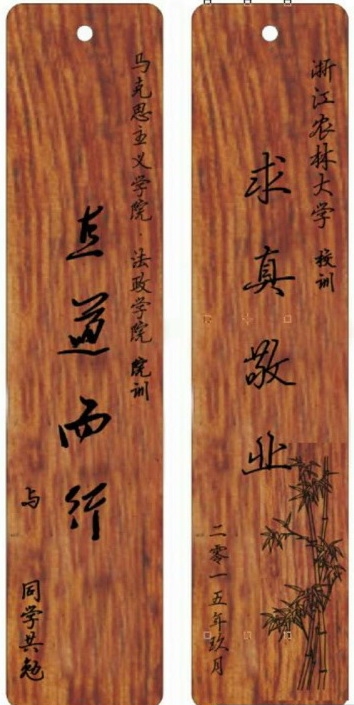 马克思主义学院·法政学院 院训
直道而行
与
同学共勉
浙江农林大学 校训
求真敬业
二零一五年玖月